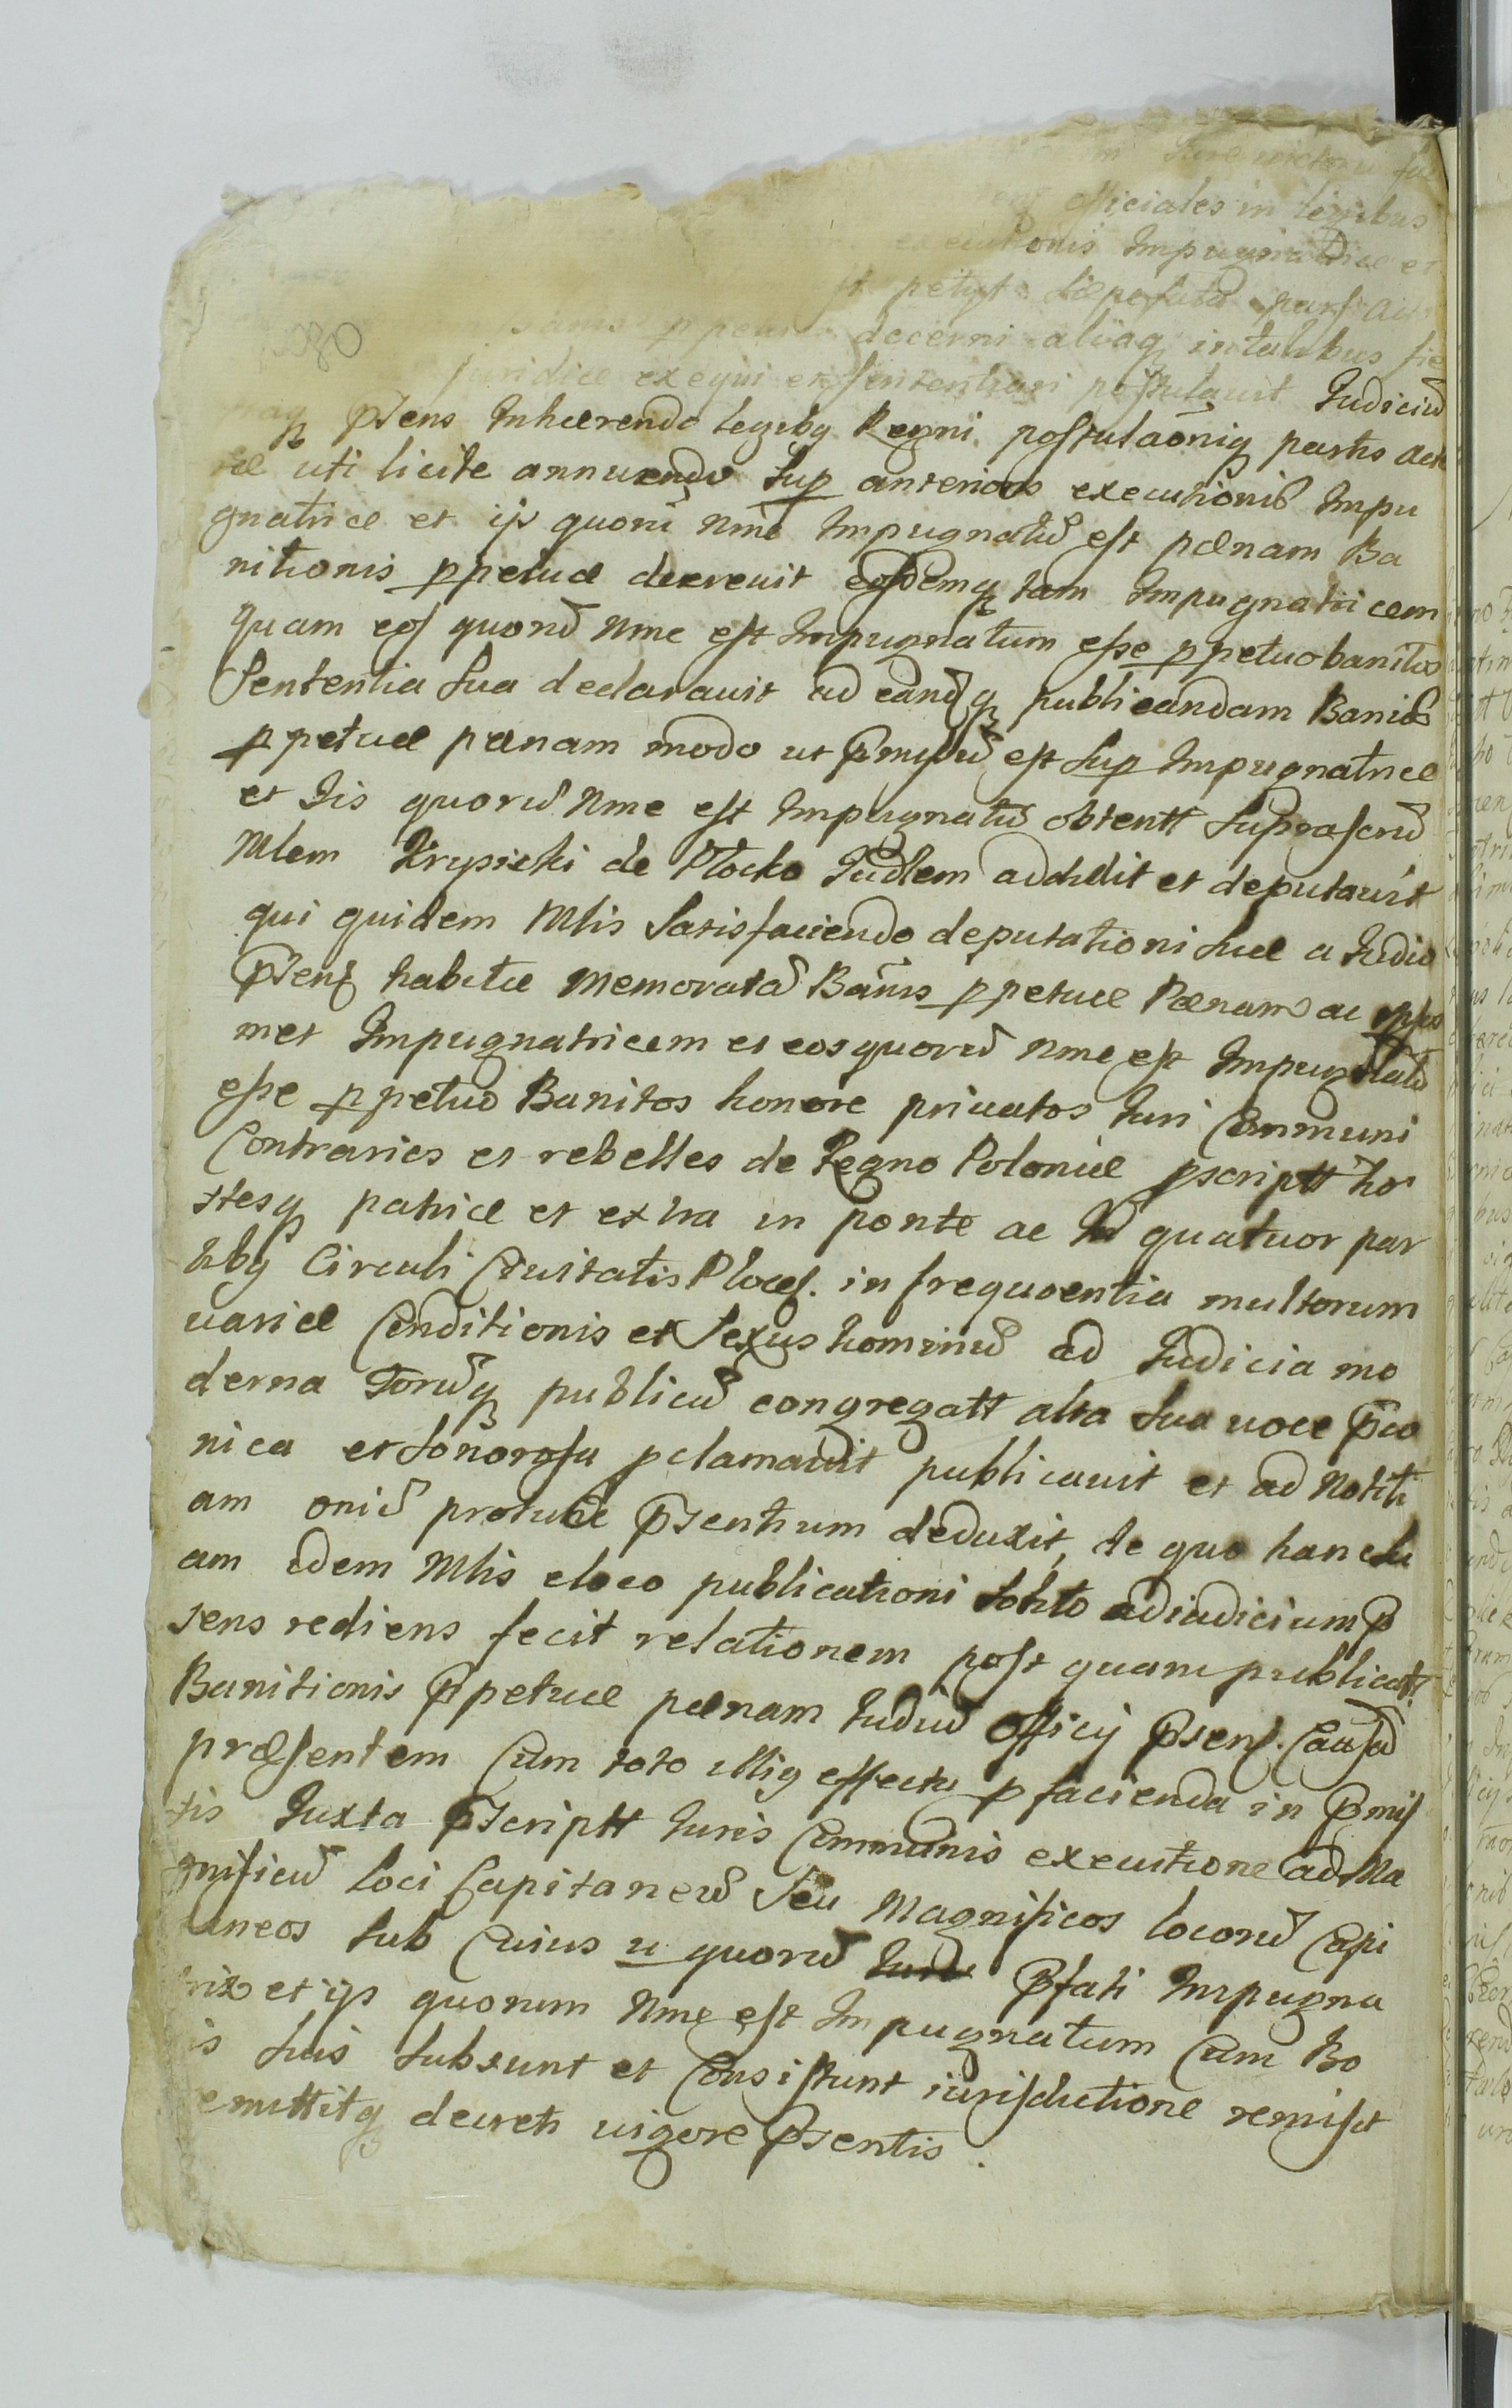 officiales in legibus
Impugnatrice et
petijt pars
decerni aliaq in talibus fie
exequi et sententiari postulavit Iudiciu
pnsens Inhaerendo legibq Regni postulaoniq partis acto
rae uti licite annuendo sup anteriors executionis Impu
gnatrice et ijs quoru nme Impugnatu est paenam Ba
nitionis ppetuae decrevit eosdemq tam Impugnatricem
quam eos quoru nme est Impugnatum esse ppetuo banitos
Sententia sua declaravit ad eandq publicandam Banis
ppetuae paenam modo ut pmissu est sup Impugnatrice
et Iis quoru nme est Impugnatu obtentt suprascru
Mlem Krysicki de Plocko Iudlem addidit et deputavit
qui quidem Mlis satisfaciendo deputationi suae a Iudio
psens habitae memorata Banis ppetuae Paenam ac ipsos
met Impugnatricem et eos quoru nme est Impugnatu
esse ppetuo Banitos honore privatos Iuri Communi
Contrarios et rebelles de Regno Poloniae pscriptt ho
stesq patriae et extra in ponte ac In quatuor par
tibq Circuli Civitatis Ploces. in frequentia multorum
variae Conditionis et Sexus hominu ad Iudicia mo
derna Foruq publicu congregatt alta sua voce pco
nica et sonorosa pclamavit publicavit et ad notiti
am oniu protunc psentium deduxit, de quo hanc su
am idem Mlis e loco publicationi solito ad iudicium p
sens rediens fecit relationem post quam publicatt
Banitionis ppetuae paenam Iudiu Officij psens. Causa
praesentem Cum toto illiq effectu p facienda in pmis
sis Iuxta pscriptt Iuris Communis executione ad Ma
gnificu loci Capitaneu seu Magnificos locoru Capi
taneos sub Cuius u quoru pfati Impugna
trix et ijs quorum nme est Impugnatum Cum Bo
is suis subsunt et Consistunt iurisdictione remisit
emittitq decreti vigore psentis.